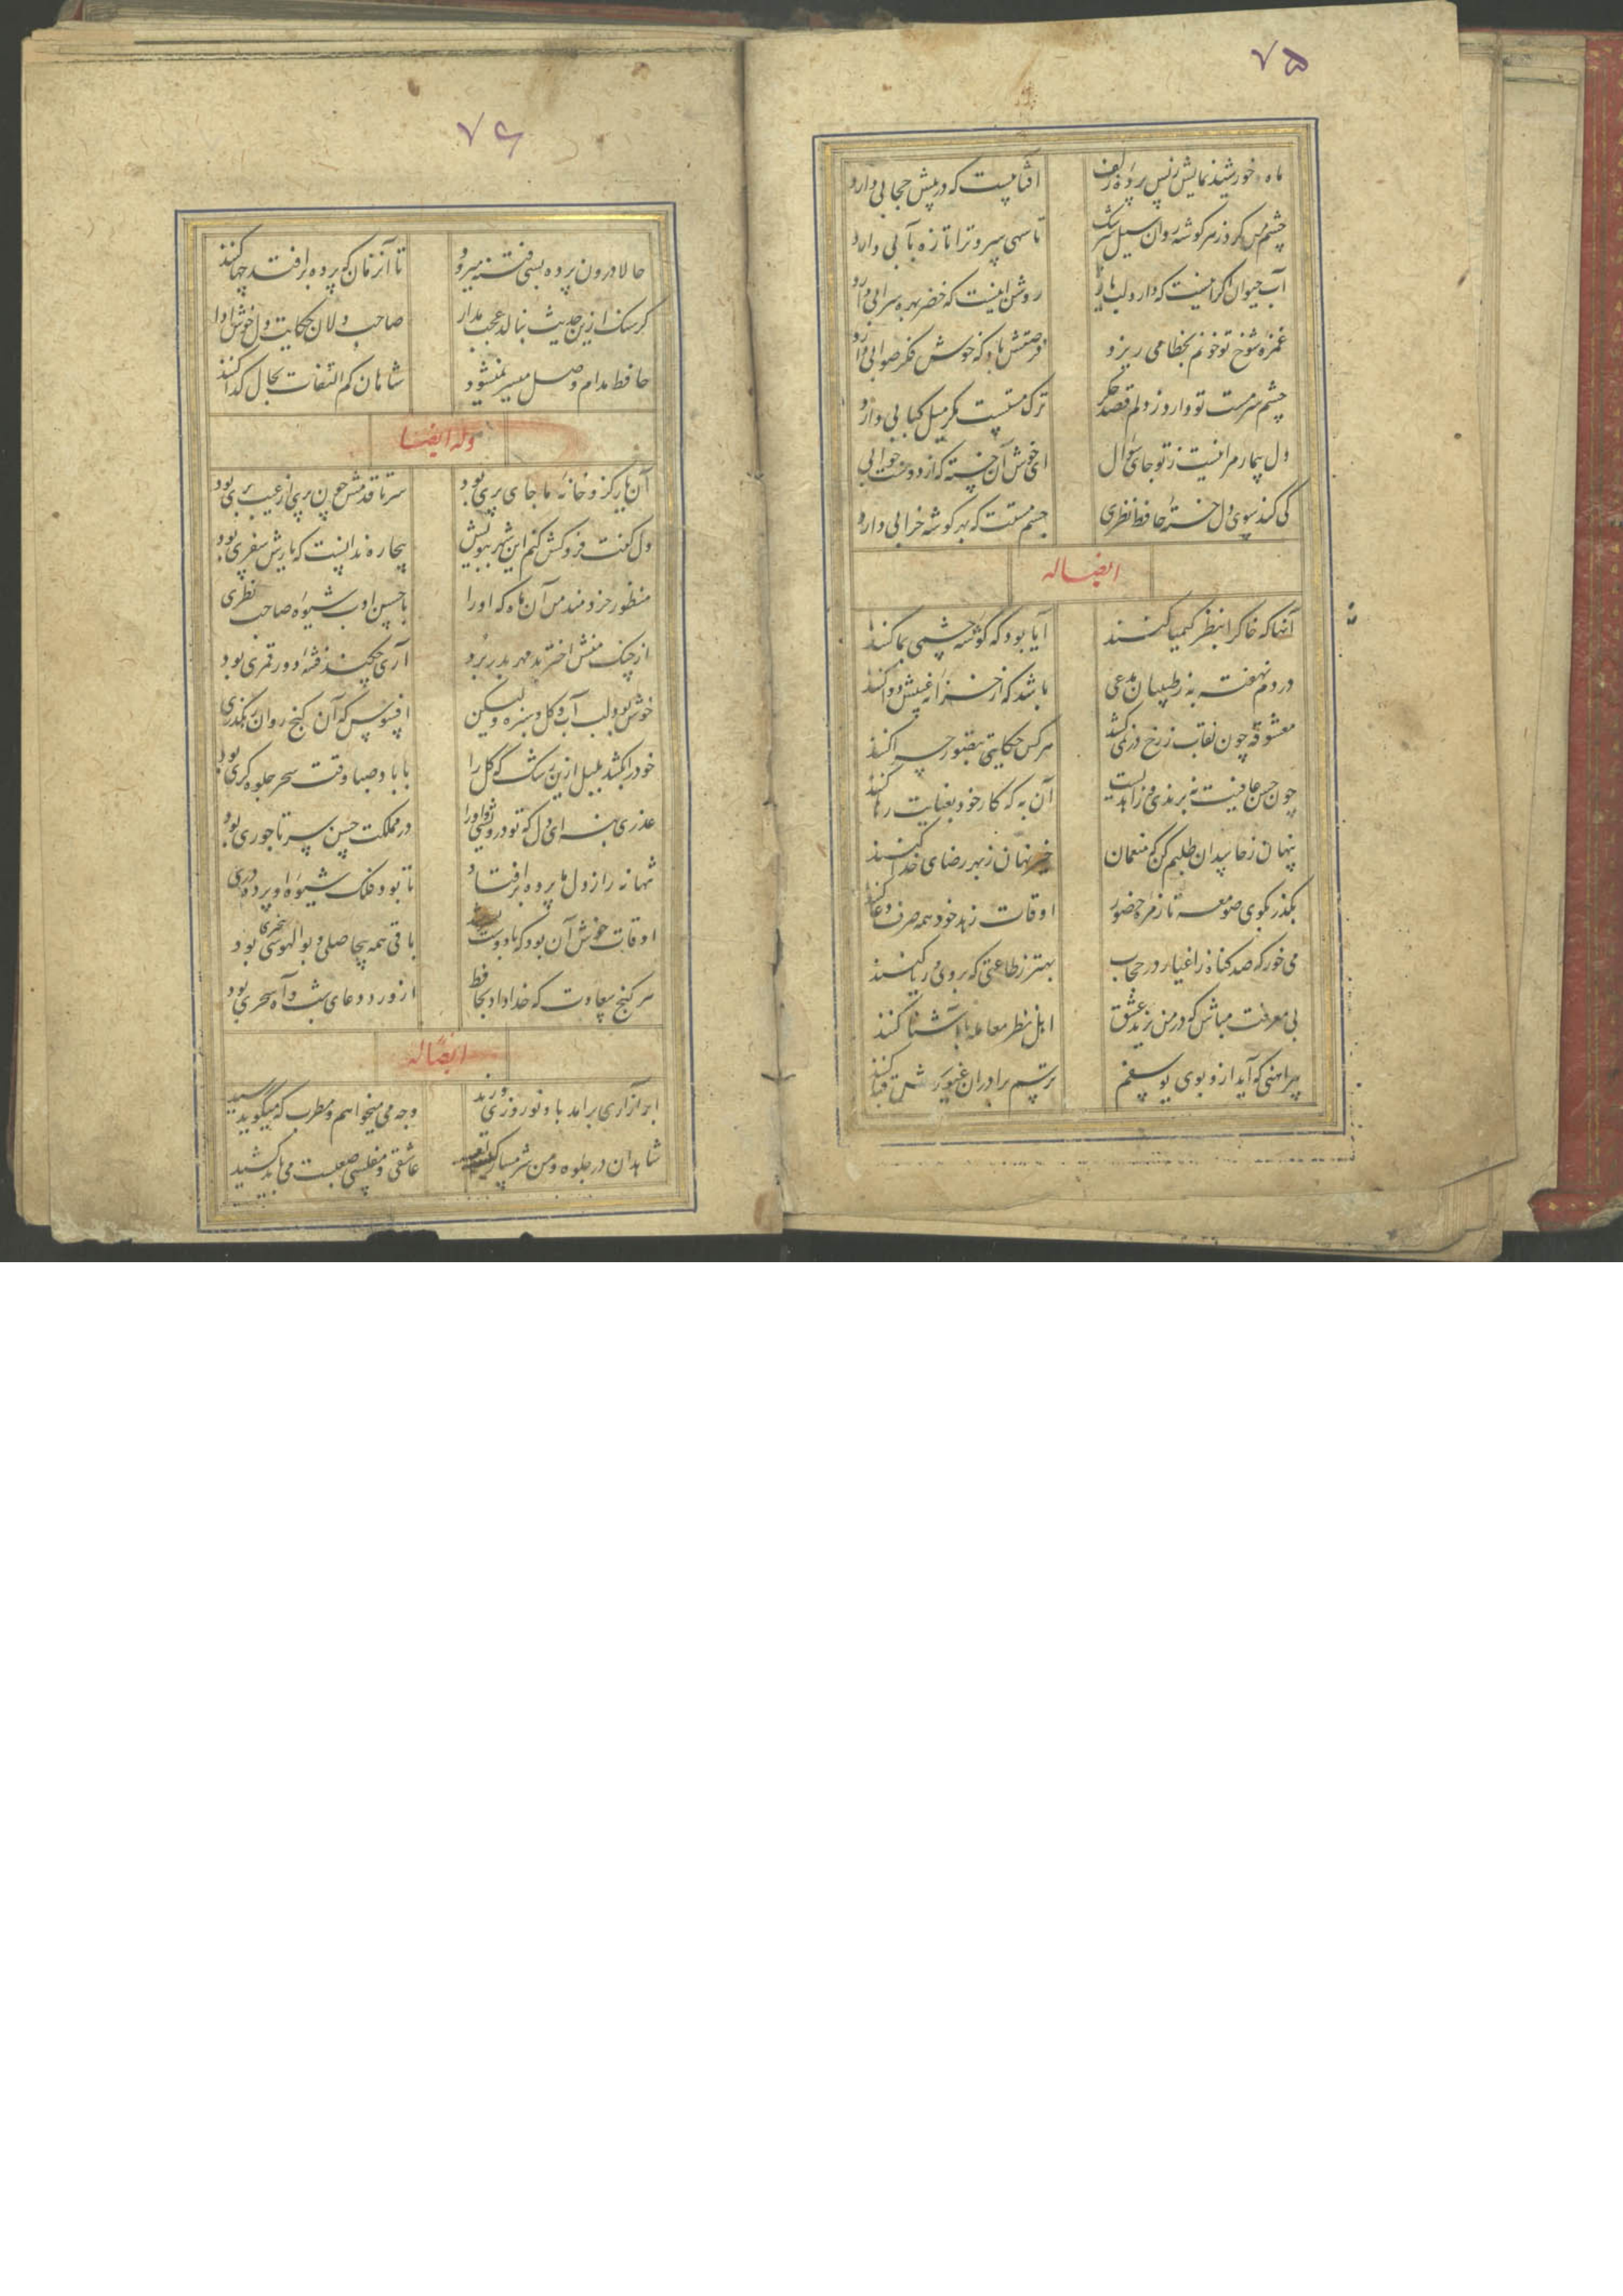 ۷۵
ماه خورشید نمایش ز پس پرده زلف
آفتابیست که در پیش حجابی دارد
چشم من کرد ز هر گوشه روان سیل سرشک
تا سهی سرو ترا تازه بآبی دارد
آب حیوان اگر اینست که دارد لب یار
روشن اینست که خضر بهره سرابی دارد
غمزه شوخ تو خونم بخطا می ریزد
فرصتش باد که خوش فکر صوابی دارد
چشم سرمست تو دارد ز دلم قصد جگر
ترک مستیست مگر میل کبابی دارد
دل بیمار مرا نیست ز تو جای سؤال
ای خوش آن خسته که از دوست جوابی
کی کند سوی دل خسته حافظ نظری
چشم مستت که بهر گوشه خرابی دارد
ایضا له
آنها که خاکرا بنظر کیمیا کنند
آیا بود که گوشه چشمی بما کنند
دردم نهفته به ز طبیبان مدعی
باشد که از خزانه غیبش دوا کنند
معشوقه چون نقاب ز رخ در نمی کشد
هر کس حکایتی بتصور چرا کنند
چون حسن عاقبت نه برندی و زاهدیست
آن به که کار خود بعنایت رها کنند
پنهان ز حاسدان طلبم کن که منعمان
خیر نهان ز بهر رضای خدا کنند
بگذر بکوی صومعه تا زمره حضور
اوقات زهد خود همه صرف دعا کنند
می خور که صد گناه ز اغیار در حجاب
بهتر ز طاعتی که بروی و ریا کنند
بی معرفت مباش که در من یزید عشق
اهل نظر معامله با آشنا کنند
پیراهنی که آید ازو بوی یوسفم
ترسم برادران غیورش قبا کنند
۷۶
حالا درون پرده بسی فتنه میرود
تا آنزمان که پرده برافتد چها کنند
گر سنگ ازین حدیث بنالد عجب مدار
صاحب دلان حکایت دل خوش ادا
حافظ مدام وصل میسر نمیشود
شاهان کم التفات بحال گدا کنند
وله ایضا
آن یار کزو خانه ما جای پری بود
سر تا قدمش چون پری از عیب بری بود
دل گفت فروکش کنم این شهر ببویش
بیچاره ندانست که یارش سفری بود
منظور خردمند من آن ماه که او را
با حسن ادب شیوه صاحب نظری
از چنگ منش اختر بد مهر بدر برد
آری چکند فتنه دور قمری بود
خوش بود لب آب و گل و سبزه ولیکن
افسوس که آن گنج روان رهگذری
خود را بکشد بلبل ازین رشک که گل را
با باد صبا وقت سحر جلوه گری بود
عذری بنه ای دل که تو درویشی و او را
در مملکت حسن سر تاجوری بود
تنها نه راز دل ما پرده برافتاد
تا بود فلک شیوه او پرده دری
اوقات خوش آن بود که با دوست بسر شد
باقی همه بیحاصلی و بوالهوسی بود
هر گنج سعادت که خدا داد بحافظ
از ورد دعای شب و آه سحری بود
ایضا له
ابر آزاری برآمد باد نوروزی وزید
وجه می میخواهم و مطرب که میگوید رسید
شاهدان در جلوه و من شرمسار کیسه‌ام
عاشقی و مفلسی صعبست می باید کشید